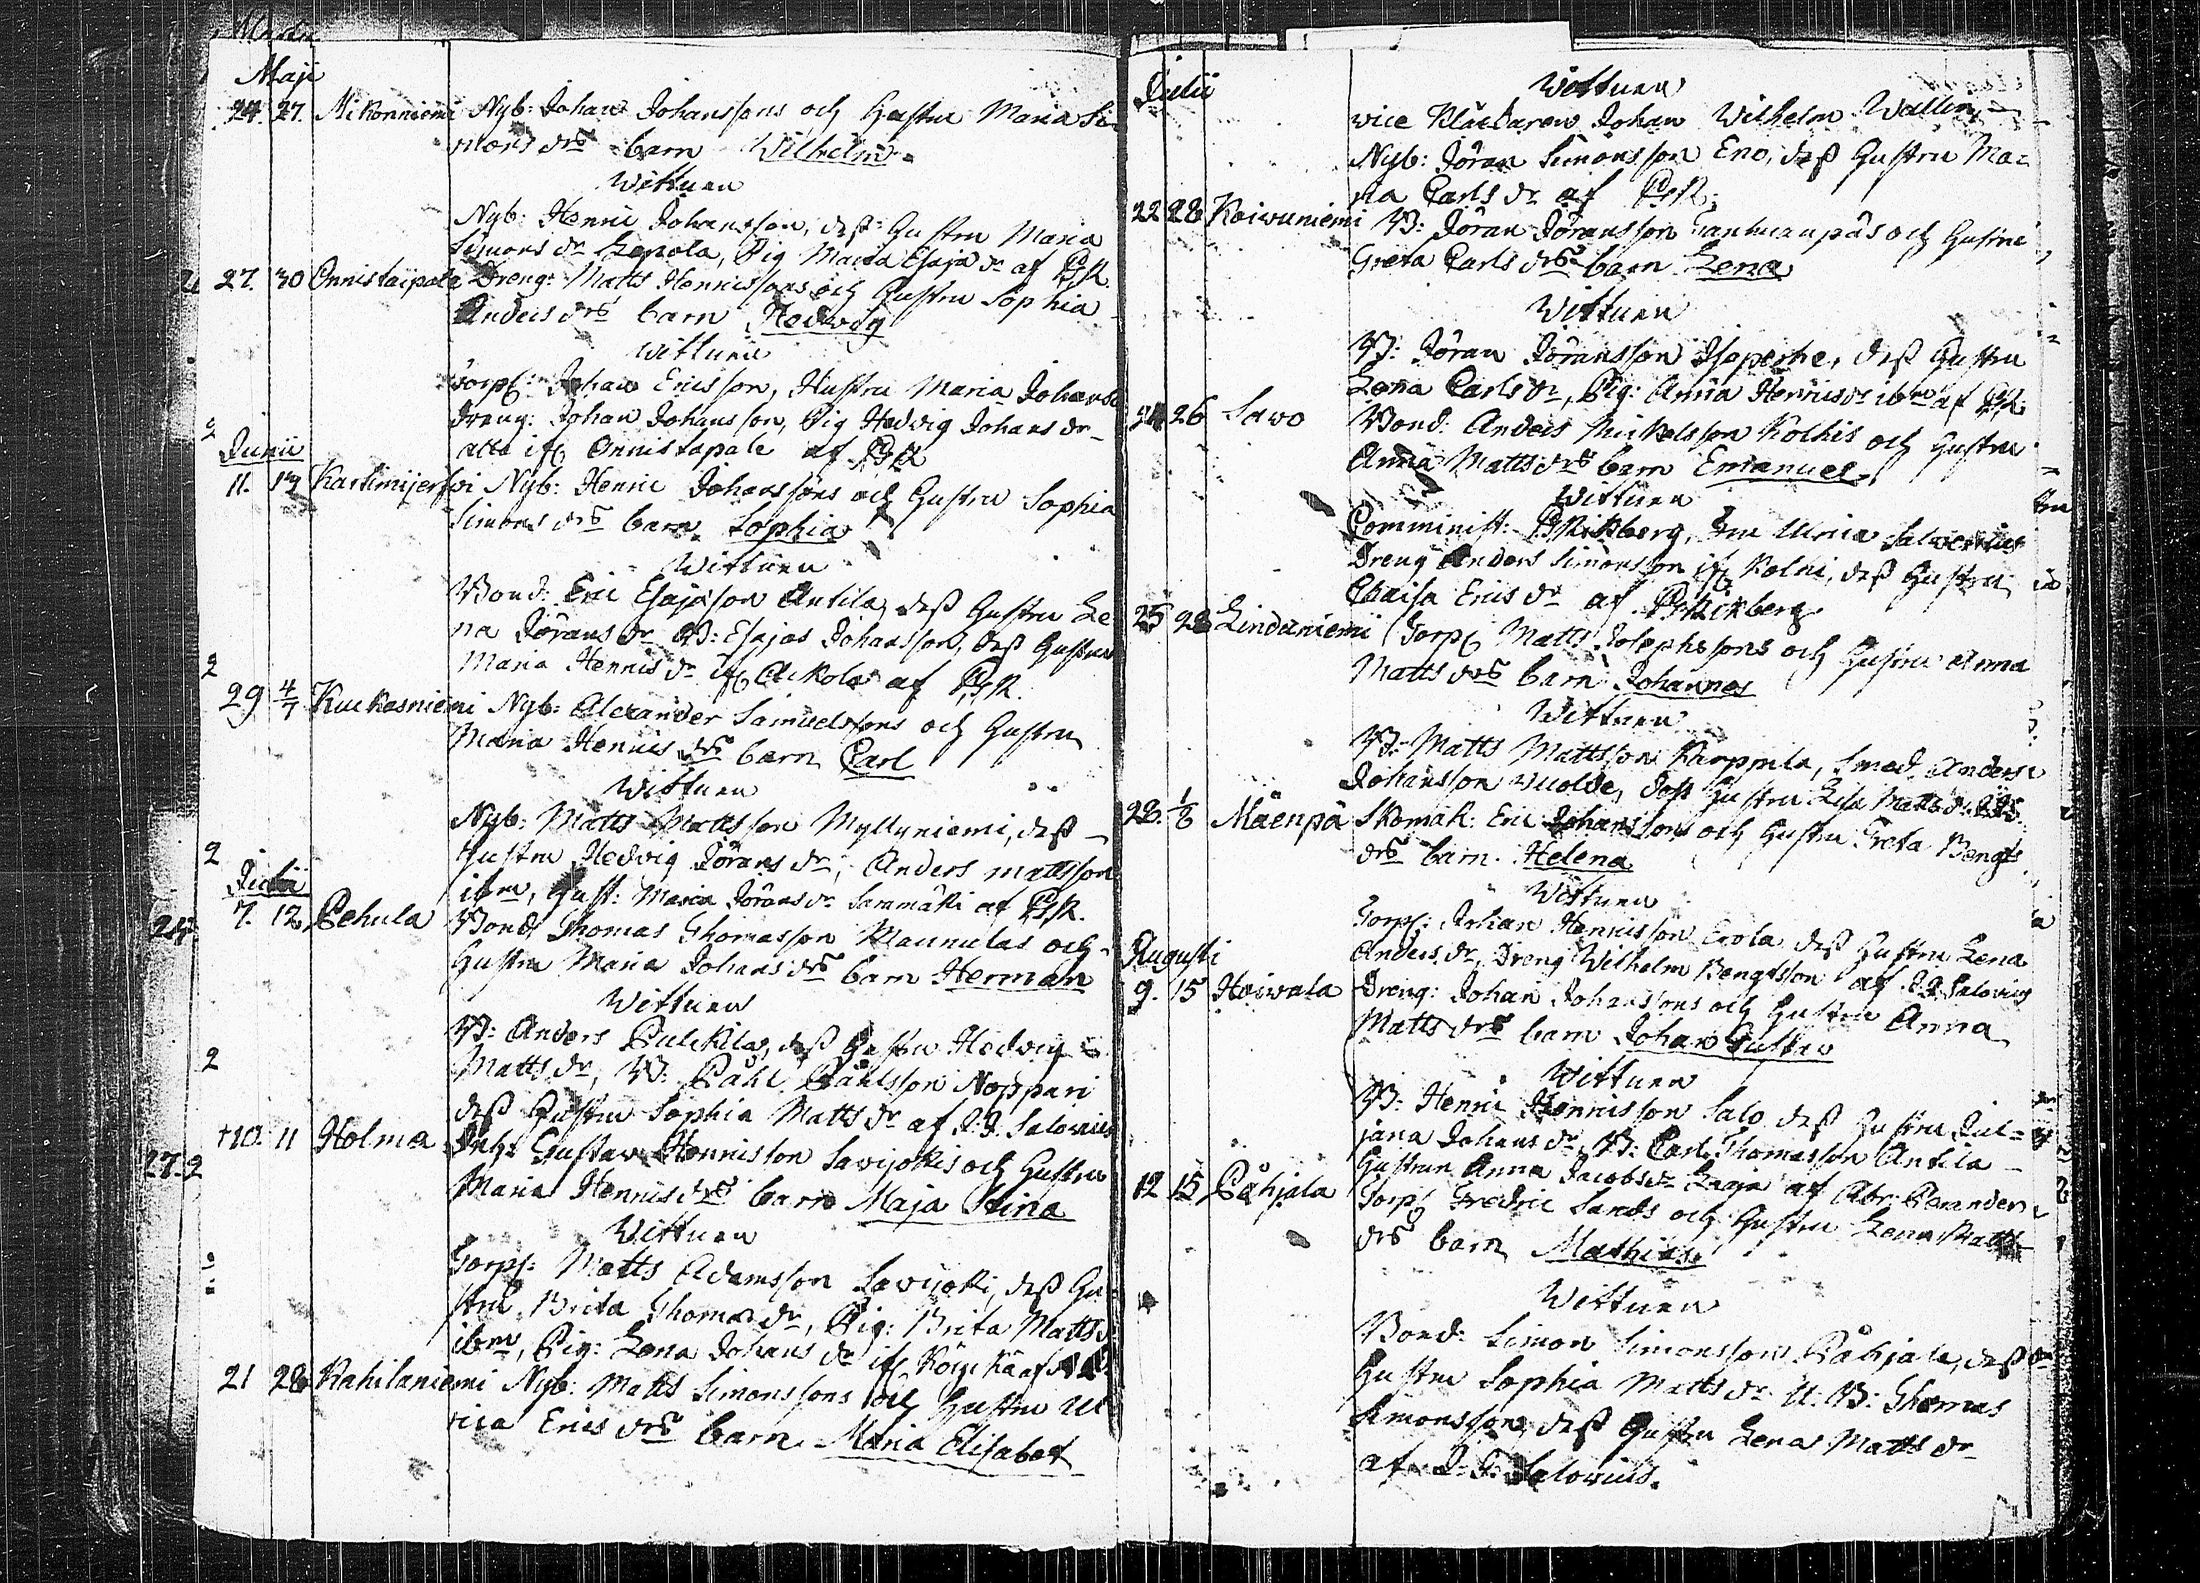 Maji
24. 27. Mikonniemi Nyb: Johan Johanssons och Hustru Maria Si-
mons drs barn Wilhelm
Wittnen
Nyb: Henric Johansson, dess Hustru Maria
Simons dr Lepola, Pig Maria Esaja dr af
27. 30 Onnistaipale Dreng: Matts Henricssons och Hustru Sophia
Anders drs barn Hedwig
Wittnen
Torp: Johan Ericsson, Hustru Maria Johans
Dreng: Johan Johansson, Pig Hedvig Johans dr
alla ifr Onnistapale af
Junii
11. 17 Karhmijerfwi Nyb: Henric Johanssons och Hustru Sophia
Simons drs barn Sophia
Wittnen
Bond: Eric Esajasson Antila, dess Hustru Le
na Jörans dr B: Esajas Johansson, dess Hustru
Maria Henrics dr ifr Ackola af
29 4/7 Kuckasniemi Nyb: Alexander Samuelssons och Hustru
Maria Henrics drs barn Carl
Wittnen
Nyb: Matts Mattsson Myllyniemi, dess
Hustru Hedvig Jörans dr, Anders Mattsson
ibm, Hust: Maria Jörans dr Sammakki af
Julii
7. 12 Pehula Bond: Thomas Thomasson Maunulas och
Hustru Maria Johans drs barn Herman
Wittnen
B: Anders Pulckila, dess Hustru Hedvig
Matts dr, B: Påhl Påhlsson Noppari
dess Hustru Sophia Matts dr af J. J. Salovius
+10. 11 Holma Inh: Gustav Henricsson Savijokis och Hustru
Maria Henrics drs barn Maja Stina
Wittnen
Torp: Matts Adamsson Savijoki, dess Hu
stru Brita Thomas dr, Pig: Brita Matts d
ibm, Pig: Lena Johans dr ifr
21 28 Kahilaniemi Nyb: Matts Simonssons och Hustru Ul
rica Erics drs barn Maria Elisabet
Julii
Wittnen
vice Klåckaren Johan Wilhelm Wallin
Nyb: Jöran Simonsson Eno, dess Hustru Ma-
ria Carls dr af
22 28 Koivuniemi B: Jöran Jöransson Tanhuanpäs och Hustru
Greta Carls drs barn Lena
Wittnen
B: Jöran Jöransson Isoperhe, dess Hustru
Lena Carls dr, Pig: Anna Henrics dr ibm af
24 26 Savo Bond: Anders Mickelsson Kolhis och Hustru
Anna Matts drs barn Emanuel
Wittnen
Comminist: Rickberg, Fru Ulrica Salvenius
Dreng Anders Simonsson ifr Kolni, dess Hustru
Chaisa Erics dr af Rickberg
25 28 Lindaniemi Torp: Matts Josephssons och Hustru Anna
Matts drs barn Johannes
Wittnen
B: Matts Mattsson Karppila, Smed. Anders
Johansson Wuolde, dess Hustru Lisa Matts dr
28. 1/8 Mäenpä Skomak: Eric Johanssons och Hustru Greta Bengts
drs barn Helena
Wittnen
Torp: Johan Henricsson Erola dess Hustru Lena
Anders dr, Dreng Wilhelm Bengtsson af J. J. Salovius
Augusti
9. 15 Hoivala Dreng: Johan Johanssons och Hustru Anna
Matts drs barn Johan Gustav
Wittnen
B: Henric Henricsson Salo dess Hustru Jul-
jana Johans dr, B: Carl Thomasson Antila
Hustrun Anna Jacobs dr af Abr:
12 15 Påhjala Torp: Fredric Sands och Hustru Lena Matts
drs barn Mathias
Wittnen
Bond: Simon Simonsson Påhjala, dess
Hustru Sophia Matts dr U. B: Thomas
Simonsson, dess Hustru Lena Matts dr
af J. J. Salovius.